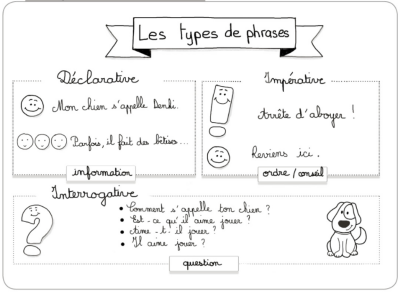 Les types de phrases
Déclarative
Mon chien s'appelle Denki.
Parfois, il fait des bêtises...
information
Impérative
Arrête d'aboyer !
Reviens ici.
ordre / conseil
Interrogative
• Comment s'appelle ton chien ?
• Est-ce qu'il aime jouer ?
• Aime-t-il jouer ?
• Il aime jouer ?
question